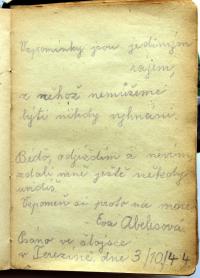 Vzpomínky jsou jediným
rájem,
z něhož nemůžeme
býti nikdy vyhnáni.
Beďo, odjíždím a nevím,
zdali mne ještě někdy
uvidíš.
Vzpomeň si proto na mne
Eva Abelesová
Psáno ve
v Terezíně, dne 3/10/44